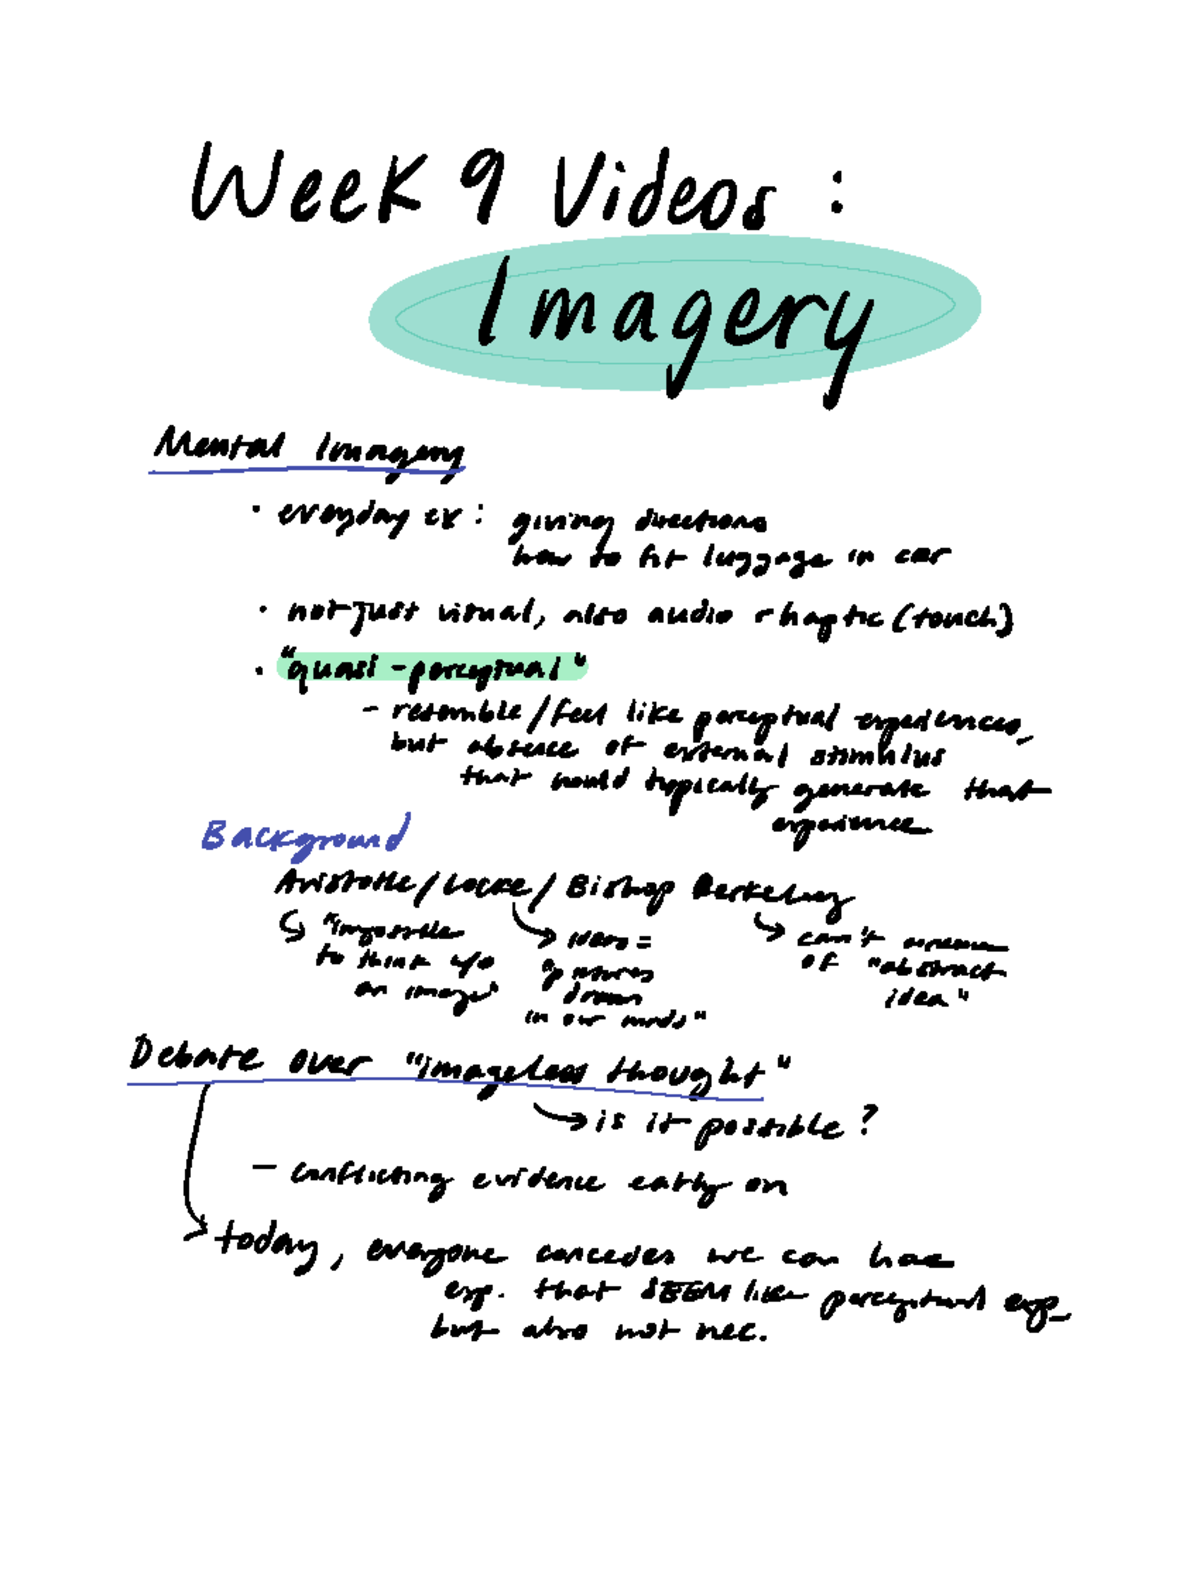 Week 9 Videos :
Imagery
Mental Imagery
• everyday ex: giving directions
how to fit luggage in car
• not just visual, also audio + haptic (touch)
• "quasi-perceptual"
- resemble/feel like perceptual experiences,
but absence of external stimulus
that would typically generate that
experience
Background
Aristotle/Locke/Bishop Berkeley
↳ "impossible
to think w/o
an image"
→ ideas =
"pictures
drawn
in our minds"
↳ can't
of "abstract
idea"
Debate over "imageless thought"
→ is it possible?
- conflicting evidence early on
→ today, everyone concedes we can have
exp. that SEEM like perceptual exp
but also not nec.